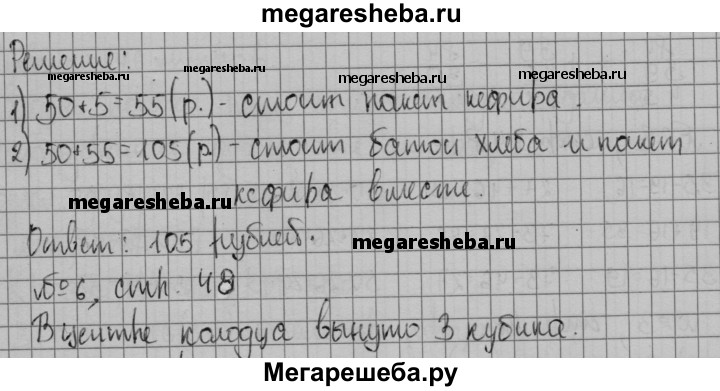 megaresheba.ru
Решение:
megaresheba.ru megaresheba.ru megaresheba.ru megaresheba.ru
1) 50+5=55(р.) - стоит пакет кефира.
2) 50+55=105(р) - стоит батон хлеба и пакет
megaresheba.ru кефира вместе.
Ответ: 105 рублей. megaresheba.ru
№6, стр. 48
В центре колодца вынуто 3 кубика.
Мегарешеба.ру